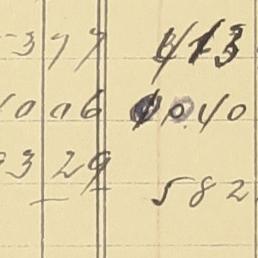 377 413
10 06 1040
93 29
582